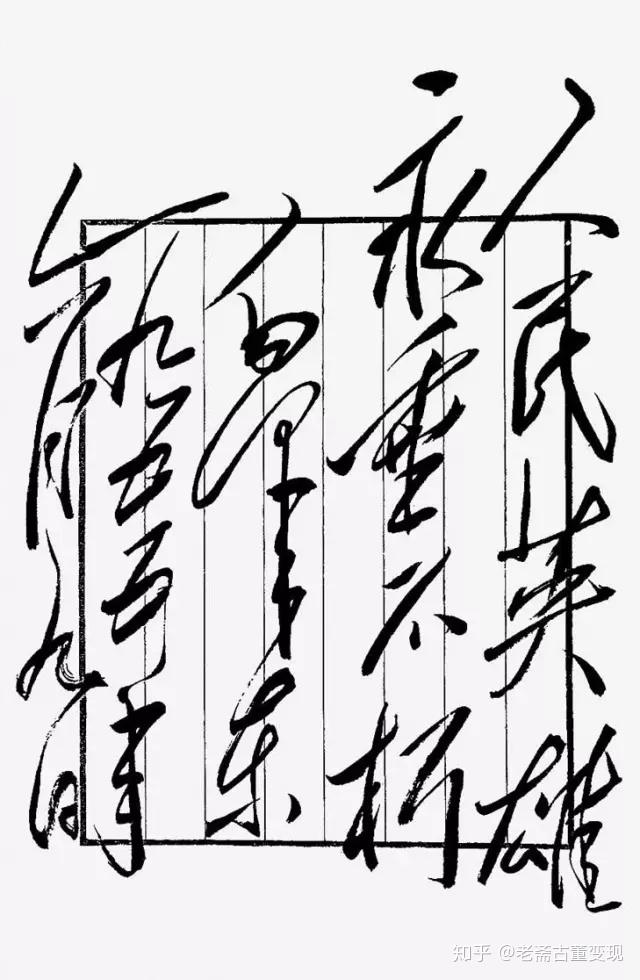 人民英雄
永垂不朽
毛泽东
一九五五年
六月九日
知乎 @老斋古董变现